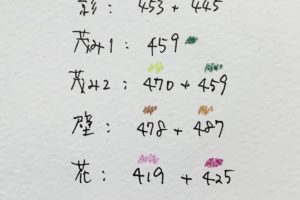 影: 453 + 445
茂み1: 459
茂み2: 470 + 459
壁: 478 + 487
花: 419 + 425